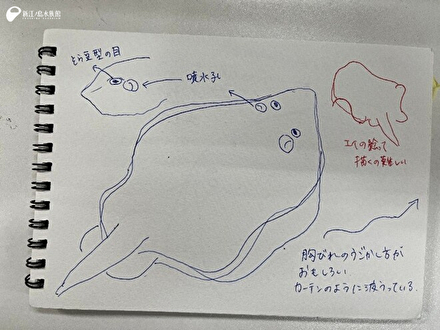 新江ノ島水族館
そら豆型の目
噴水孔
エイの絵って
描くの難しい
胸びれのうごかし方が
おもしろい
カーテンのように波うっている。